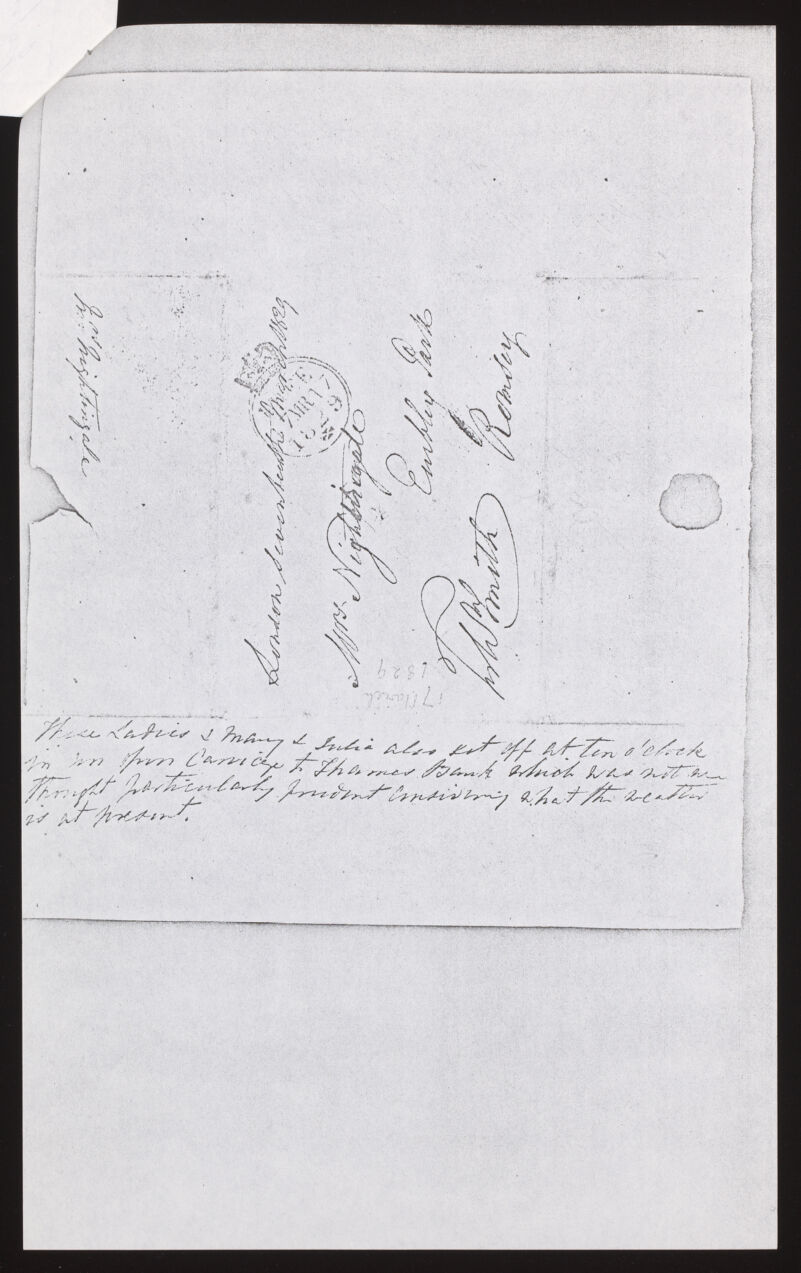 London seventeenth March 1829
Mrs. Nightingale
Embley Park
Romsey
W Smith
FREE
MR 17
1829
17 March
1829
Nightingale
These Ladies & Mary & Julia also set off at ten o'clock
in an open Carriage to Thames Bank which was not
thought particularly prudent considering what the weather
is at present.